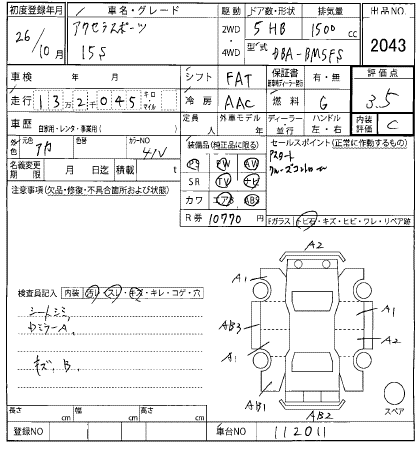 初度登録年月 車名・グレード 駆動 ドア数・形状 排気量 出品NO
26/10月 アクセラスポーツ 15S 2WD・4WD 5HB 1500cc 2043
型式 DBA-BM5FS
車検 年 月 シフト FAT 保証書 有・無 評価点
走行 13万2千045 キロ マイル 冷房 AAC 燃料 G 3.5
車歴 自家用・レンタ・事業用( ) 定員 人 外車モデル 年 ディーラー・並行 ハンドル 左・右 内装評価 C
外色 元色 アカ 色替 カラーNO 41V 装備品(純正品に限る) セールスポイント(正常に作動するもの)
名義変更期限 月 日迄 積載 t PS PW AV アスタート
SR TV ナビ クルーズコントロール
注意事項(欠品・修復・不具合箇所および状態) カワ エアB ABS
R券 10770円 Fガラス トビ石・キズ・ヒビ・ワレ・リペア跡
検査員記入 内装 汚レ・スレ・キズ・キレ・コゲ・穴
シートシミ
ドミラーA
キズ、B
A2
A1
A1
AB3
A1
A2
AB1
AB2
スペア
長さ cm 幅 cm 高さ cm
登録NO 車台NO 112011